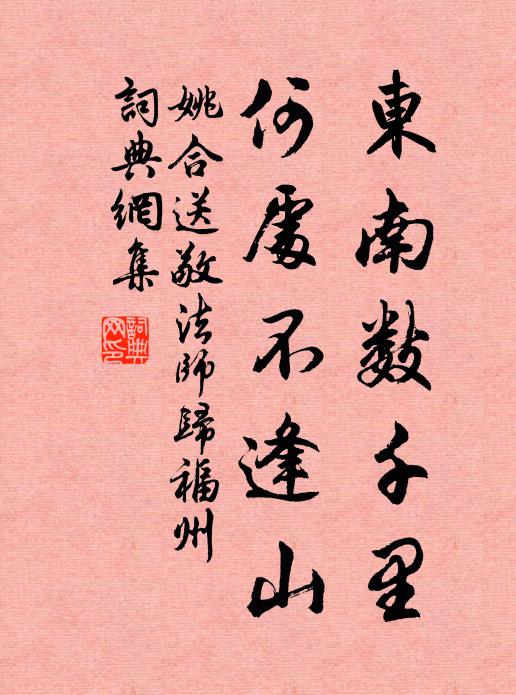 東南數千里
何處不逢山
姚合送敬法師歸福州
詞典網集
詞典
网印